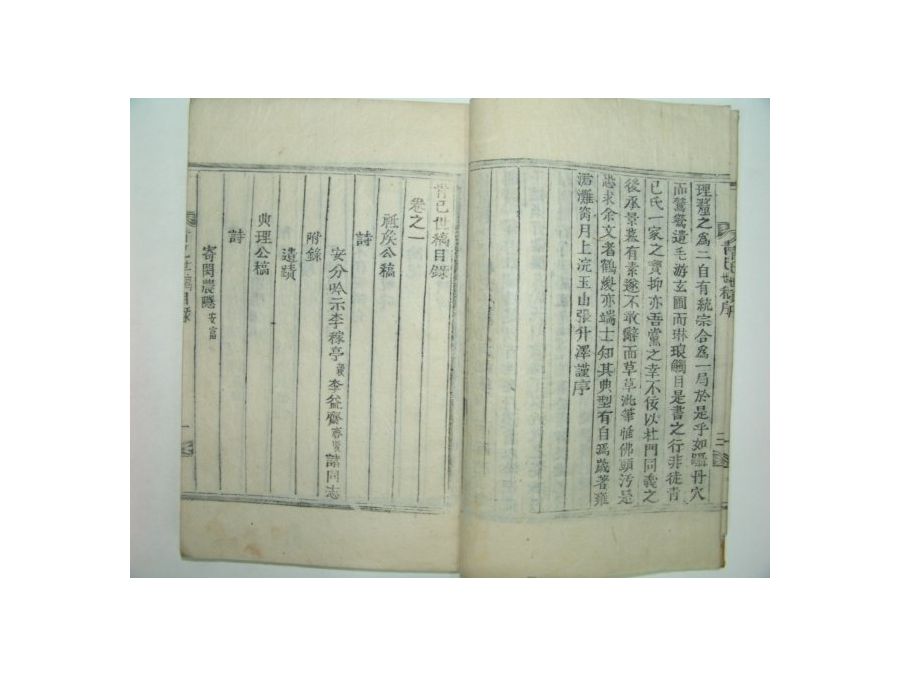 理釐之爲二自有統宗合爲一局於是乎如躡丹穴
而鸑鷟遺毛游玄圃而琳琅觸目是書之行非徒青
已氏一家之寶抑亦吾黨之幸不佞以杜門同義之
後承景慕有素遂不敢辭而草草泚筆惟佛頭汚是
恐求余文者鶴纋亦端士知其典型有自焉歲著雍
涒灘菊月上浣玉山張升澤謹序
青已世稿目錄
卷之一
祗矦公稿
詩
安分吟示李稼亭 李益齋 諸同志
附錄
遺蹟
典理公稿
詩
寄閔農隱安富